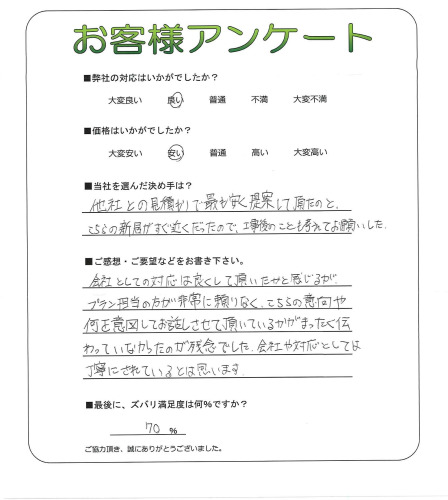 お客様アンケート
■弊社の対応はいかがでしたか？
大変良い 良い 普通 不満 大変不満
■価格はいかがでしたか？
大変安い 安い 普通 高い 大変高い
■当社を選んだ決め手は？
他社との見積わりで最も安く提案して頂たのと、
こちらの新居がすぐ近くだったので、工事後のことも考えてお願いした。
■ご感想・ご要望などをお書き下さい。
会社としての対応は良くして頂いたかと感じるが、
プラン担当の方が非常に頼りなく、こちらの意向や
何を意図してお話しさせて頂いているかがまったく伝
わっていなかったのが残念でした。会社や対応としては
丁寧にされているとは思います。
■最後に、ズバリ満足度は何％ですか？
70 %
ご協力頂き、誠にありがとうございました。